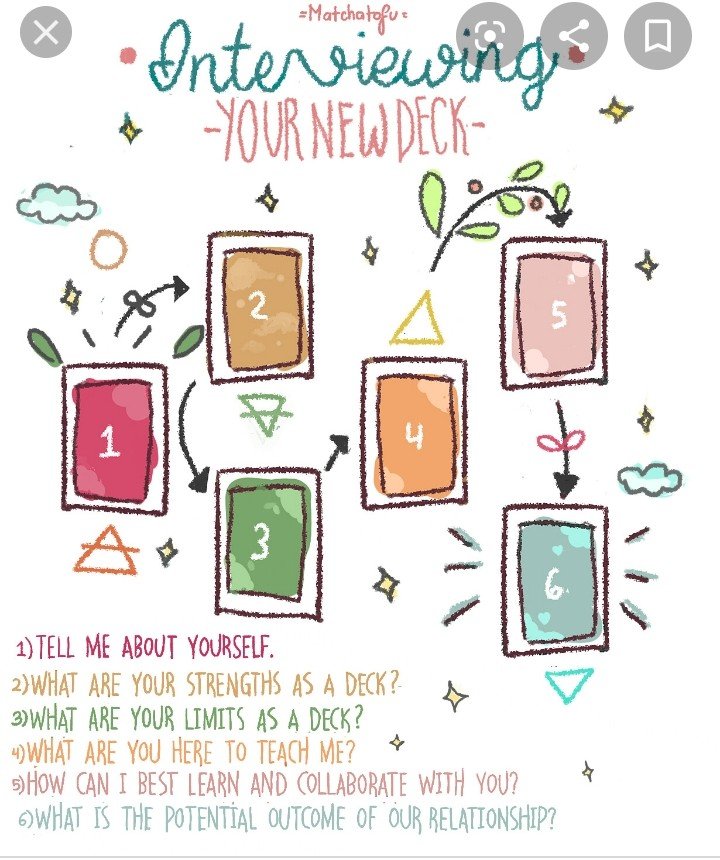 =Matchatofu=
Interviewing
-YOUR NEW DECK-
2
5
1
4
3
6
1)TELL ME ABOUT YOURSELF.
2)WHAT ARE YOUR STRENGTHS AS A DECK?
3)WHAT ARE YOUR LIMITS AS A DECK?
4)WHAT ARE YOU HERE TO TEACH ME?
5)HOW CAN I BEST LEARN AND COLLABORATE WITH YOU?
6)WHAT IS THE POTENTIAL OUTCOME OF OUR RELATIONSHIP?